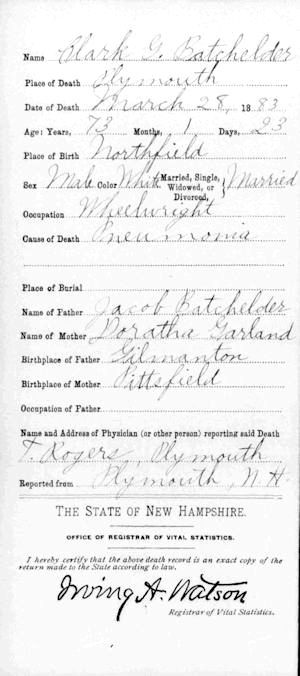 Name Clark G. Batchelder
Place of Death Plymouth
Date of Death March 28, 1883
Age: Years, 73 Months, 1 Days, 23
Place of Birth Northfield
Sex Male Color White Married, Single, Widowed, or Divorced, } Married
Occupation Wheelwright
Cause of Death Pneumonia
Place of Burial
Name of Father Jacob Batchelder
Name of Mother Doratha Garland
Birthplace of Father Gilmanton
Birthplace of Mother Pittsfield
Occupation of Father
Name and Address of Physician (or other person) reporting said Death
F. Rogers, Plymouth
Reported from Plymouth, N.H.
THE STATE OF NEW HAMPSHIRE.
OFFICE OF REGISTRAR OF VITAL STATISTICS.
I hereby certify that the above death record is an exact copy of the
return made to the State according to law.
Irving A. Watson
Registrar of Vital Statistics.